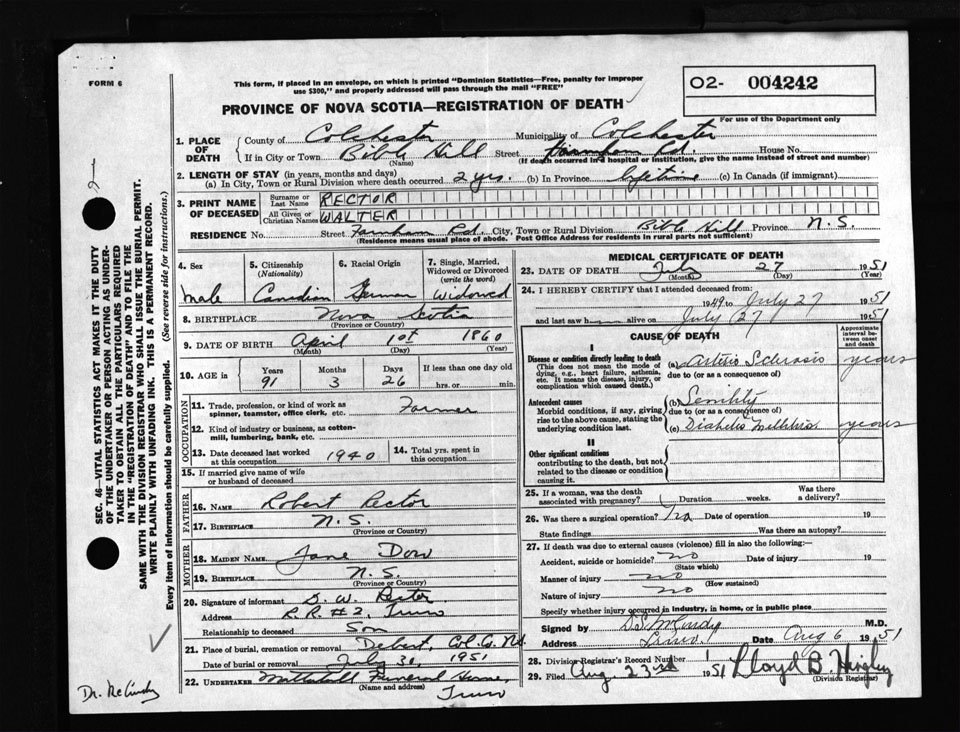 FORM 6
This form, if placed in an envelope, on which is printed "Dominion Statistics—Free, penalty for improper
use $300," and properly addressed will pass through the mail "FREE"
O2- 004242
PROVINCE OF NOVA SCOTIA—REGISTRATION OF DEATH
For use of the Department only
1. PLACE OF DEATH
County of Colchester Municipality of Colchester
If in City or Town Bible Hill Street Farnham Rd. House No.
(Name) (If death occurred in a hospital or institution, give the name instead of street and number)
2. LENGTH OF STAY (in years, months and days)
(a) In City, Town or Rural Division where death occurred 2 yrs. (b) In Province lifetime (c) In Canada (if immigrant)
3. PRINT NAME OF DECEASED
Surname or Last Name RECTOR
All Given or Christian Names WALTER
RESIDENCE No. Street Farnham Rd. City, Town or Rural Division Bible Hill Province N.S.
(Residence means usual place of abode. Post Office Address for residents in rural parts not sufficient)
4. Sex
male
5. Citizenship (Nationality)
Canadian
6. Racial Origin
German
7. Single, Married, Widowed or Divorced (write the word)
Widowed
8. BIRTHPLACE Nova Scotia
(Province or Country)
9. DATE OF BIRTH April 1st 1860
(Month) (Day) (Year)
10. AGE in Years Months Days If less than one day old
91 3 26 hrs. or min.
OCCUPATION
11. Trade, profession, or kind of work as spinner, teamster, office clerk, etc. Farmer
12. Kind of industry or business, as cotton-mill, lumbering, bank, etc.
13. Date deceased last worked at this occupation 1940
14. Total yrs. spent in this occupation
15. If married give name of wife or husband of deceased
FATHER
16. NAME Robert Rector
17. BIRTHPLACE N.S.
(Province or Country)
MOTHER
18. MAIDEN NAME Jane Dow
19. BIRTHPLACE N.S.
(Province or Country)
20. Signature of informant W. Rector
Address R.R #2, Truro
Relationship to deceased Son
21. Place of burial, cremation or removal Debert, Col. Co. N.S.
Date of burial or removal July 30, 1951
22. UNDERTAKER Mattatall Funeral Home,
(Name and address) Truro
MEDICAL CERTIFICATE OF DEATH
23. DATE OF DEATH July 27 1951
(Month) (Day)
24. I HEREBY CERTIFY that I attended deceased from:
1949 to July 27 1951
and last saw h alive on July 27 1951
CAUSE OF DEATH
Approximate interval between onset and death
I
Disease or condition directly leading to death
(This does not mean the mode of dying, e.g., heart failure, asthenia, etc. It means the disease, injury, or complication which caused death.)
(a) Arterio Sclerosis years
due to (or as a consequence of)
Antecedent causes
Morbid conditions, if any, giving rise to the above cause, stating the underlying condition last.
(b) Senility
due to (or as a consequence of)
(c) Diabetes Mellitus years
II
Other significant conditions
contributing to the death, but not related to the disease or condition causing it.
25. If a woman, was the death associated with pregnancy? Duration weeks. Was there a delivery?
26. Was there a surgical operation? no Date of operation 19
State findings Was there an autopsy?
27. If death was due to external causes (violence) fill in also the following:—
Accident, suicide or homicide? no Date of injury 19
(State which)
Manner of injury no
(How sustained)
Nature of injury no
Specify whether injury occurred in industry, in home, or in public place
Signed by M.D.
Address Truro. Date Aug 6 1951
28. Division Registrar's Record Number
29. Filed Aug. 23rd 1951 Lloyd B.
(Division Registrar)
SEC. 46—VITAL STATISTICS ACT MAKES IT THE DUTY
OF THE UNDERTAKER OR PERSON ACTING AS UNDER-
TAKER TO OBTAIN ALL THE PARTICULARS REQUIRED
IN THE "REGISTRATION OF DEATH" AND TO FILE THE
SAME WITH THE DIVISION REGISTRAR WHO SHALL ISSUE THE BURIAL PERMIT.
WRITE PLAINLY WITH UNFADING INK. THIS IS A PERMANENT RECORD.
Every item of information should be carefully supplied. (See reverse side for instructions.)
Dr.